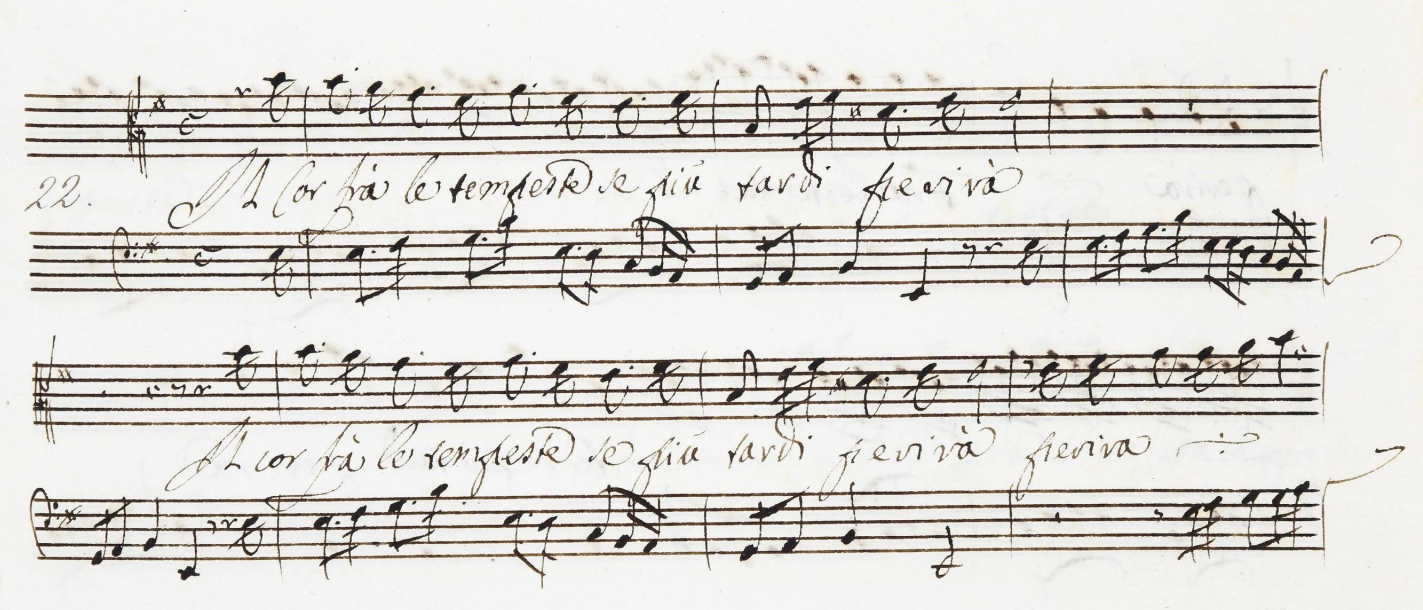 22. Il Cor frà le tempeste se più tardi perirà
Il cor frà le tempeste se più tardi perirà perira